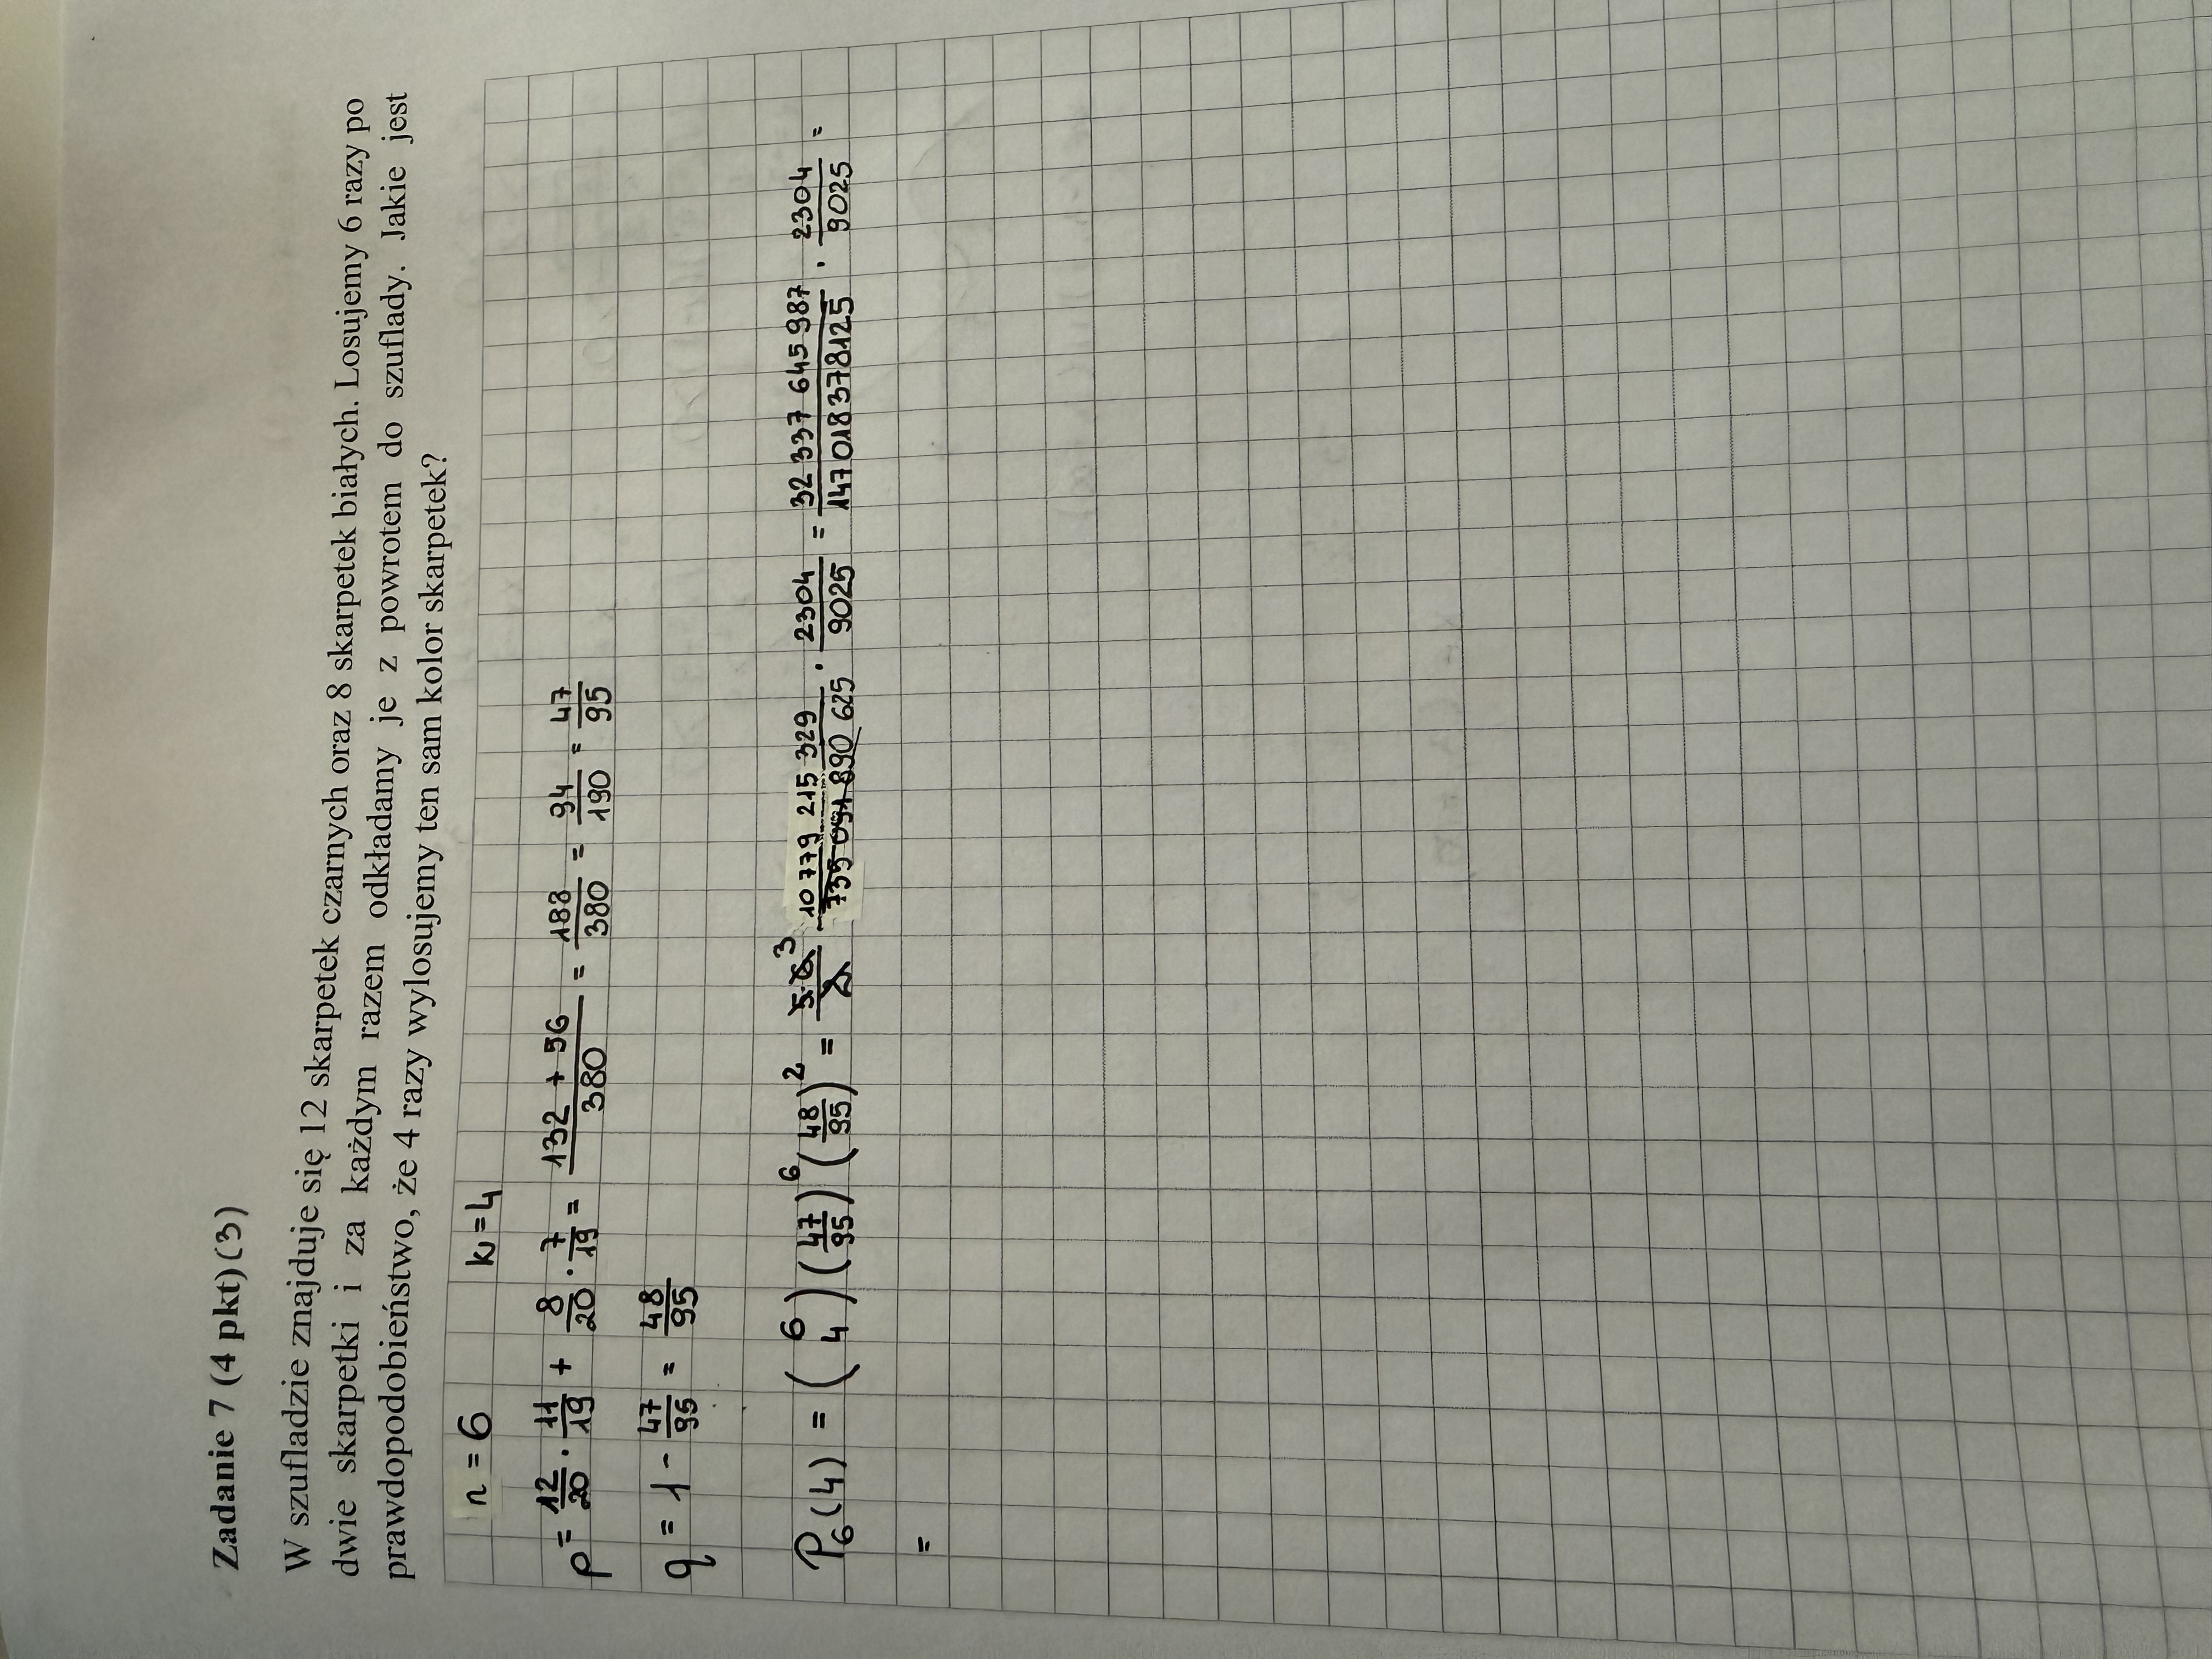 Zadanie 7 (4 pkt) (3)
W szufladzie znajduje się 12 skarpetek czarnych oraz 8 skarpetek białych. Losujemy 6 razy po
dwie skarpetki i za każdym razem odkładamy je z powrotem do szuflady. Jakie jest
prawdopodobieństwo, że 4 razy wylosujemy ten sam kolor skarpetek?
n = 6 k = 4
p = 12/20 · 11/19 + 8/20 · 7/19 = (132 + 56)/380 = 188/380 = 94/190 = 47/95
q = 1 - 47/95 = 48/95
P₆(4) = (6 4) (47/95)⁶ (48/95)² = 5·6³/2 · 10 779 215 329/735 091 890 625 · 2304/9025 = 32 337 645 987/147 018 378 125 · 2304/9025 =
=